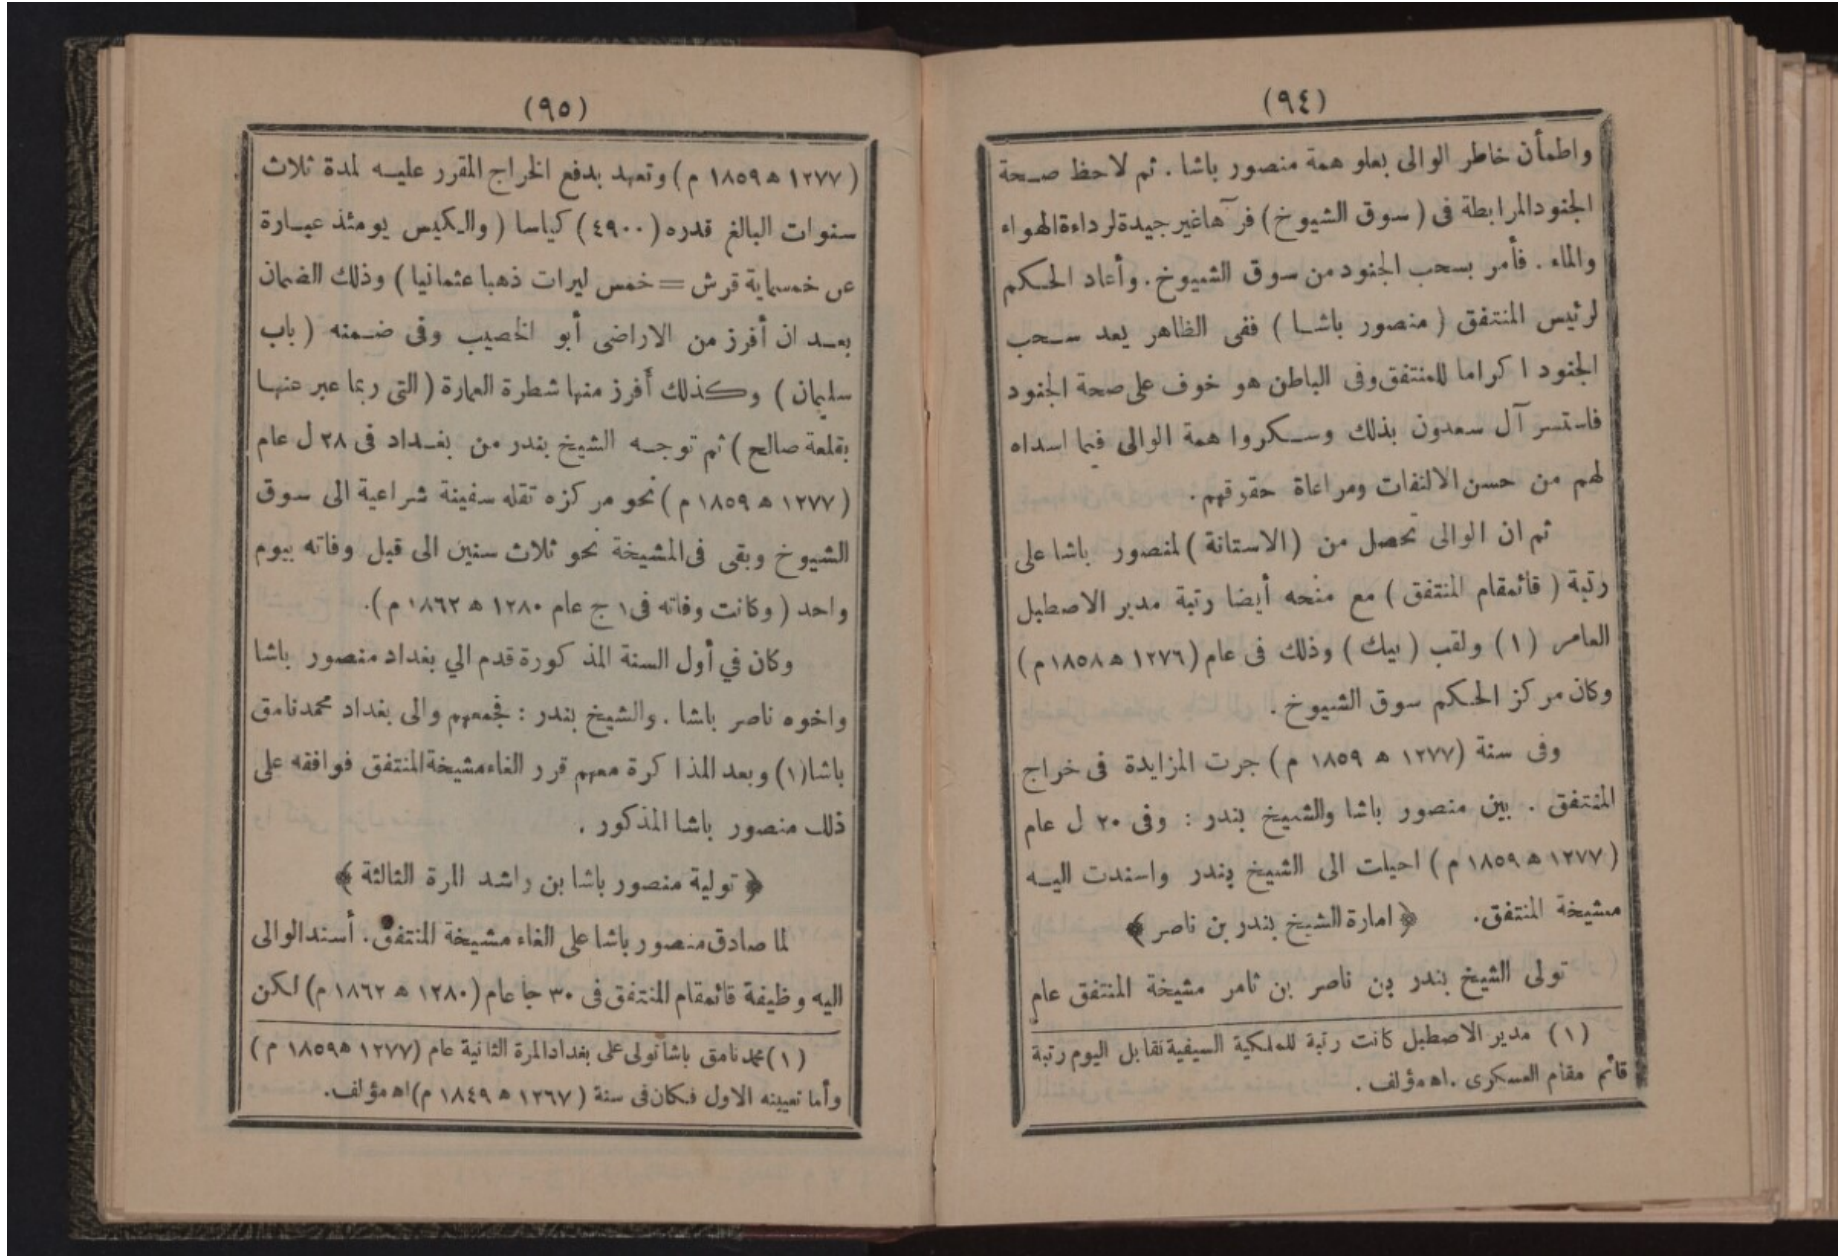 (٩٤)
واطمأن خاطر الوالى بعلو همة منصور باشا . ثم لاحظ صحة
الجنود المرابطة فى ( سوق الشيوخ ) فرآها غير جيدة لرداءة الهواء
والماء . فأمر بسحب الجنود من سوق الشيوخ . وأعاد الحكم
لرئيس المنتفق ( منصور باشا ) ففى الظاهر يعد سحب
الجنود ا كراما للمنتفق وفى الباطن هو خوف على صحة الجنود
فاستسر آل سعدون بذلك وسكروا همة الوالى فيما اسداه
لهم من حسن الالتفات ومراعاة حقوقهم .
ثم ان الوالى تحصل من ( الاستانة ) لمنصور باشا على
رتبة ( قائمقام المنتفق ) مع منحه أيضا رتبة مدير الاصطبل
العامر (١) ولقب ( بيك ) وذلك فى عام ( ١٢٧٦ ھ ١٨٥٨ م )
وكان مركز الحكم سوق الشيوخ .
وفى سنة ( ١٢٧٧ ھ ١٨٥٩ م ) جرت المزايدة فى خراج
المنتفق . بين منصور باشا والشيخ بندر : وفى ٢٠ ل عام
( ١٢٧٧ ھ ١٨٥٩ م ) احيلت الى الشيخ بندر واسندت اليه
مشيخة المنتفق. ﴿ امارة الشيخ بندر بن ناصر ﴾
تولى الشيخ بندر بن ناصر بن ثامر مشيخة المنتفق عام
(١) مدير الاصطبل كانت رتبة للملكية السيفية تقابل اليوم رتبة
قائم مقام العسكرى . اه مؤلف .
(٩٥)
( ١٢٧٧ ھ ١٨٥٩ م ) وتعهد بدفع الخراج المقرر عليه لمدة ثلاث
سنوات البالغ قدره ( ٤٩٠٠ ) كياسا ( والكيس يومئذ عبارة
عن خمسماية قرش = خمس ليرات ذهبا عثمانيا ) وذلك الضمان
بعد ان أفرز من الاراضى أبو الخصيب وفى ضمنه ( باب
سليمان ) وكذلك أفرز منها شطرة العمارة ( التى ربما عبر عنها
بقلعة صالح ) ثم توجه الشيخ بندر من بغداد فى ٢٨ ل عام
( ١٢٧٧ ھ ١٨٥٩ م ) نحو مركزه تقله سفينة شراعية الى سوق
الشيوخ وبقى فى المشيخة نحو ثلاث سنين الى قبل وفاته بيوم
واحد ( وكانت وفاته فى ١ ج عام ١٢٨٠ ھ ١٨٦٢ م ).
وكان في أول السنة المذكورة قدم الي بغداد منصور باشا
واخوه ناصر باشا . والشيخ بندر : فجمعهم والى بغداد محمد نامق
باشا (١) وبعد المذا كرة معهم قرر الغاء مشيخة المنتفق فوافقه على
ذلك منصور باشا المذكور .
﴿ تولية منصور باشا بن راشد للمرة الثالثة ﴾
لما صادق منصور باشا على الغاء مشيخة المنتفق . أسند الوالى
اليه وظيفة قائمقام المنتفق فى ٣٠ جا عام ( ١٢٨٠ ھ ١٨٦٢ م ) لكن
(١) محمد نامق باشا تولى على بغداد للمرة الثانية عام ( ١٢٧٧ ھ ١٨٥٩ م )
وأما تعيينه الاول فكان فى سنة ( ١٢٦٧ ھ ١٨٤٩ م ) اه مؤلف .